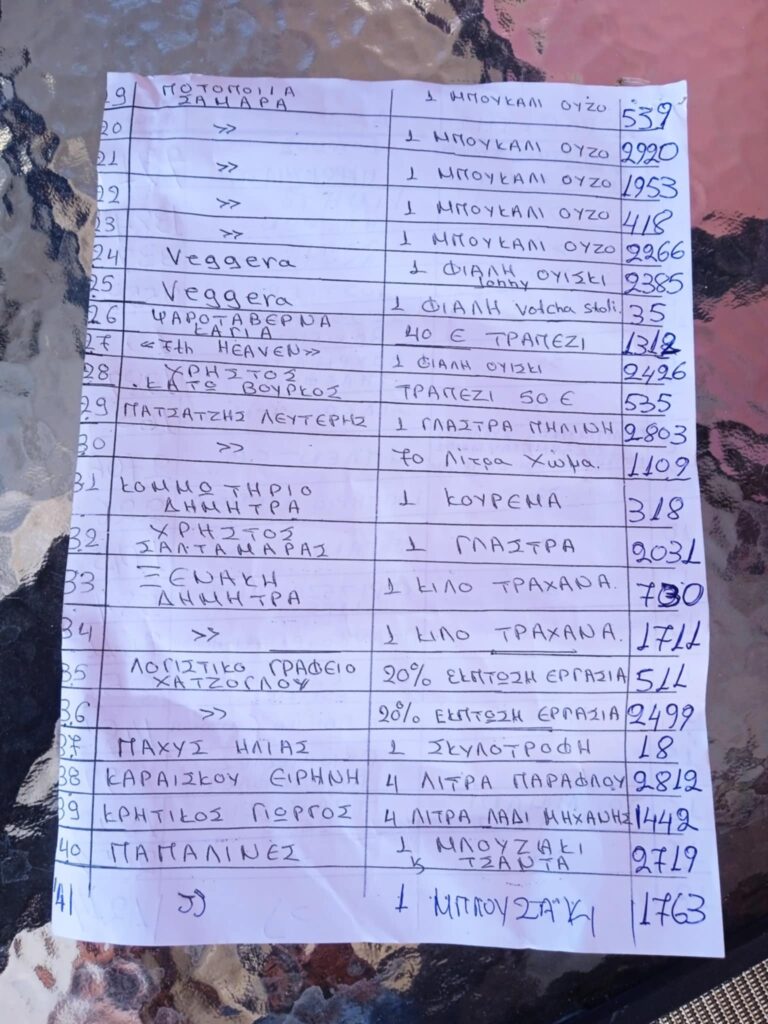 19 ΠΟΤΟΠΟΙΙΑ ΣΑΜΑΡΑ 1 ΜΠΟΥΚΑΛΙ ΟΥΖΟ 539
20 >> 1 ΜΠΟΥΚΑΛΙ ΟΥΖΟ 2920
21 >> 1 ΜΠΟΥΚΑΛΙ ΟΥΖΟ 1953
22 >> 1 ΜΠΟΥΚΑΛΙ ΟΥΖΟ 418
23 >> 1 ΜΠΟΥΚΑΛΙ ΟΥΖΟ 2266
24 Veggera 1 ΦΙΑΛΗ ΟΥΙΣΚΙ Jonny 2385
25 Veggera 1 ΦΙΑΛΗ Votcha stoli. 35
26 ΨΑΡΟΤΑΒΕΡΝΑ ΚΑΓΙΑ 40 € ΤΡΑΠΕΖΙ 1312
27 «7th HEAVEN» 1 ΦΙΑΛΗ ΟΥΙΣΚΙ 2426
28 ΧΡΗΣΤΟΣ ΚΑΤΩ ΒΟΥΡΚΟΣ ΤΡΑΠΕΖΙ 50 € 535
29 ΠΑΤΣΑΤΖΗΣ ΛΕΥΤΕΡΗΣ 1 ΓΛΑΣΤΡΑ ΠΗΛΙΝΗ 2803
30 >> 70 Λίτρα Χώμα. 1109
31 ΚΟΜΜΩΤΗΡΙΟ ΔΗΜΗΤΡΑ 1 ΚΟΥΡΕΜΑ 318
32 ΧΡΗΣΤΟΣ ΣΑΛΤΑΜΑΡΑΣ 1 ΓΛΑΣΤΡΑ 2031
33 ΞΕΝΑΚΗ ΔΗΜΗΤΡΑ 1 ΚΙΛΟ ΤΡΑΧΑΝΑ. 730
34 >> 1 ΚΙΛΟ ΤΡΑΧΑΝΑ. 1711
35 ΛΟΓΙΣΤΙΚΟ ΓΡΑΦΕΙΟ ΧΑΤΖΟΓΛΟΥ 20% ΕΚΠΤΩΣΗ ΕΡΓΑΣΙΑ 511
36 >> 20% ΕΚΠΤΩΣΗ ΕΡΓΑΣΙΑ 2499
37 ΠΑΧΥΣ ΗΛΙΑΣ 1 ΣΚΥΛΟΤΡΟΦΗ 18
38 ΚΑΡΑΙΣΚΟΥ ΕΙΡΗΝΗ 4 ΛΙΤΡΑ ΠΑΡΑΦΛΟΥ 2812
39 ΚΡΗΤΙΚΟΣ ΓΙΩΡΓΟΣ 4 ΛΙΤΡΑ ΛΑΔΙ ΜΗΧΑΝΗΣ 1442
40 ΠΑΠΑΛΙΝΕΣ 1 ΜΠΛΟΥΖΑΚΙ Κ ΤΣΑΝΤΑ 2719
41 >> 1 1763